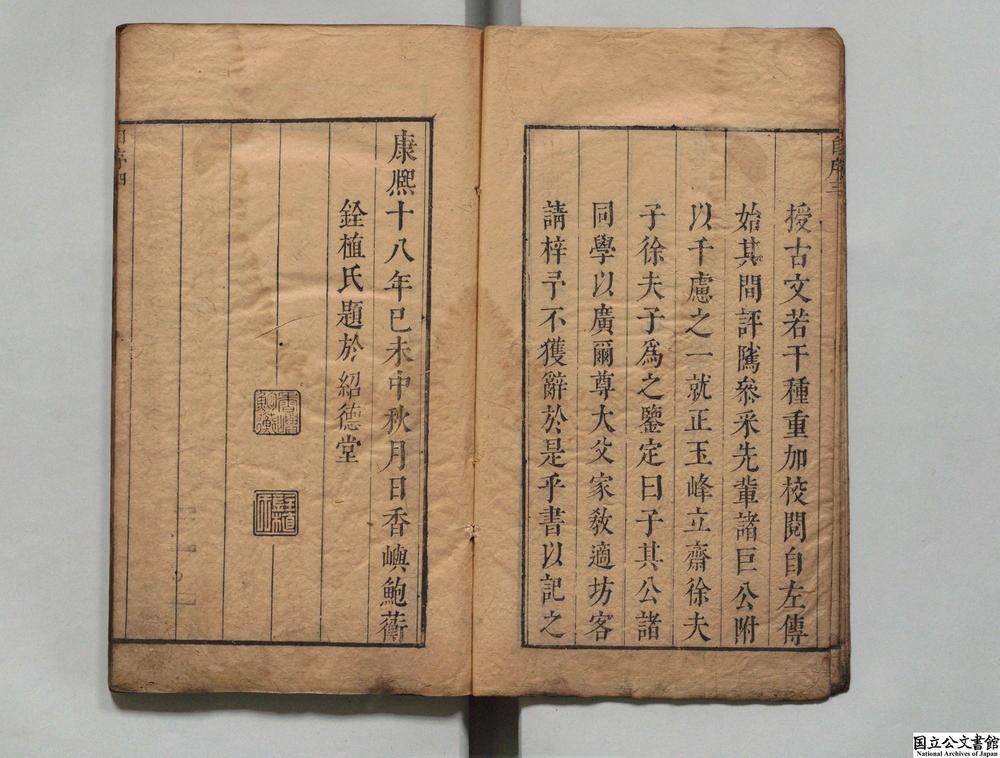 自序三
授古文若干種重加校閱自左傳
始其間評隲叅采先輩諸巨公附
以千慮之一就正玉峰立齋徐夫
子徐夫子為之鑒定曰子其公諸
同學以廣爾尊大父家教適坊客
請梓予不獲辭於是乎書以記之
康熈十八年已未中秋月日香嶼鮑蘅
銓植氏題於紹德堂
自序四
国立公文書館
National Archives of Japan